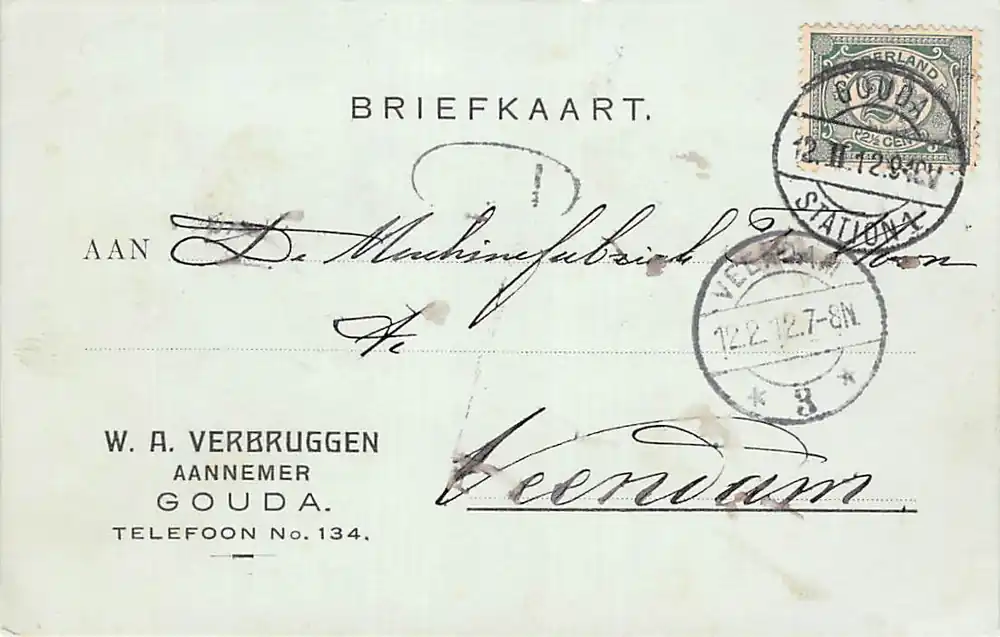 BRIEFKAART.
NEDERLAND
2½
2½ CENT
GOUDA
12.II.12.9-10V
STATION 1
AAN De Machinefabriek
Te
VEENDAM
12.2.12.7-8N.
* 3 *
Veendam
W. A. VERBRUGGEN
AANNEMER
GOUDA.
TELEFOON No. 134.